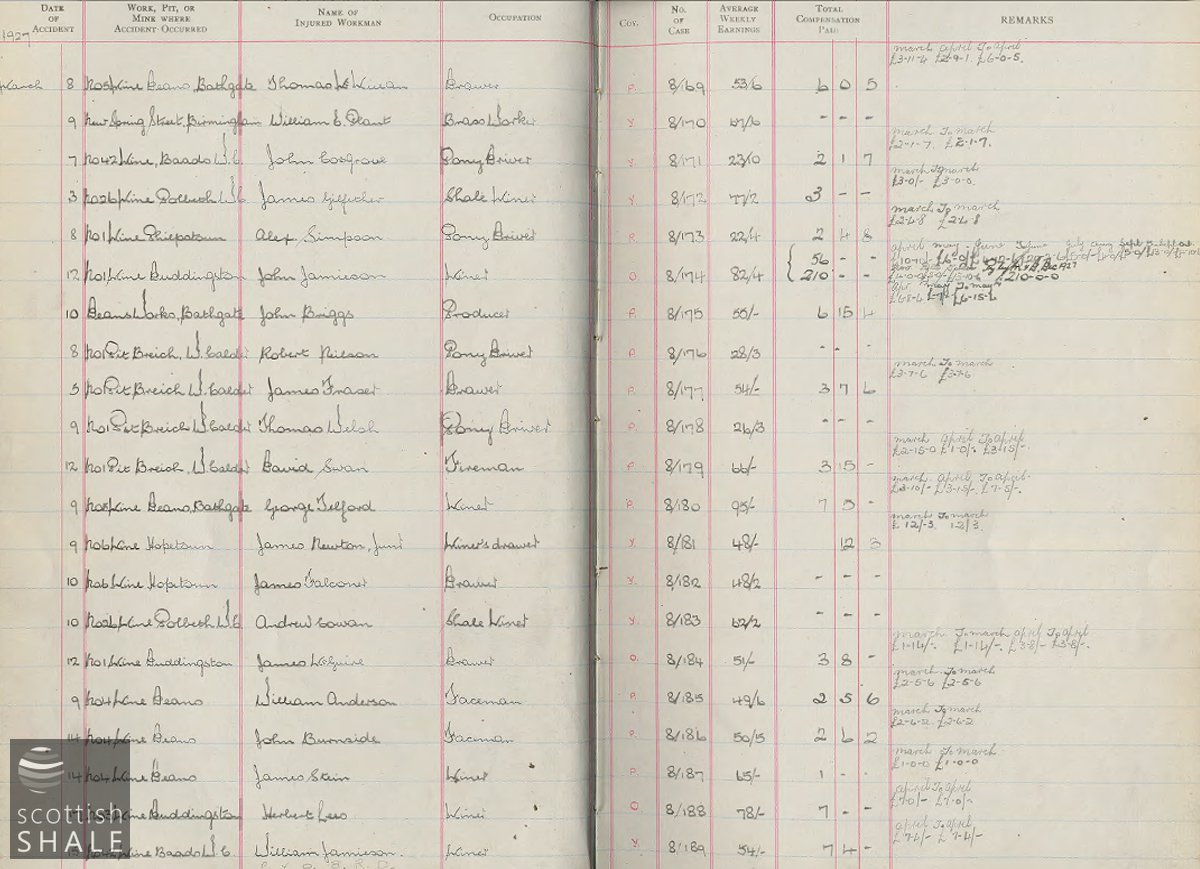 DATE OF ACCIDENT WORK, PIT, OR MINE WHERE ACCIDENT OCCURRED NAME OF INJURED WORKMAN OCCUPATION COY. NO. OF CASE AVERAGE WEEKLY EARNINGS TOTAL COMPENSATION PAID REMARKS
1927
march april To april
£3-11-4 £2-9-1. £6-0-5.
March 8 No5 Mine Deans, Bathgate Thomas Drawer P. 8/169 53/6 6 0 5
9 New Spring Street, Birmingham William E. Plant Brass Worker Y 8/170 67/6 - - -
march To march
£2-1-7. £2-1-7.
7 No42 Mine, Baads W.C. John Cosgrove Pony Driver Y 8/171 23/0 2 1 7
march To march
£3-0/- £3-0-0.
3 No26 Mine Polbeth W.C James Gilfither Shale Miner Y 8/172 77/2 3 - -
march To march
£2-4-8 £2-4-8
8 No1 Mine Philpstoun Alex Simpson Pony Driver P. 8/173 22/4 2 4 8
april may June To June July aug Sept To Sept Oct.
56 - -
12 No1 Mine Duddingston John Jamieson Miner O 8/174 82/4 210 - - £210-0-0
may To may
£6-8-6 £6-15-4
10 Deans Works, Bathgate John Briggs Producer P. 8/175 55/- 6 15 4
8 No1 Pit Breich, W. Calder Robert Neilson Pony Driver P. 8/176 28/3 - - -
march To march
£3-7-6 £3-7-6
5 No1 Pit Breich W. Calder James Fraser Drawer P. 8/177 54/- 3 7 6
9 No1 Pit Breich W. Calder Thomas Welsh Pony Driver P. 8/178 26/3 - - -
march april To april
£2-15-0 £1-0/- £3-15/-
12 No1 Pit Breich, W. Calder David Swan Fireman P. 8/179 66/- 3 15 -
march. april To april.
£3-10/- £3-15/- £7-5/-
9 No5 Mine Deans, Bathgate George Telford Miner P. 8/180 95/- 7 5 -
march To march
£ 12/-3. 12/3.
9 No6 Mine Hopetoun James Newton, Junr Miner's drawer Y. 8/181 48/- 12 3
10 No6 Mine Hopetoun James Falconer Drawer Y. 8/182 48/2 - - -
10 No26 Mine Polbeth W.C Andrew Cowan Shale Miner Y. 8/183 62/2 - - -
march To march april To april
£1-14/- £1-14/-. £3-8/- £3-8/-.
12 No1 Mine Duddingston James McGuire Drawer O. 8/184 51/- 3 8 -
march. To march
£2-5-6 £2-5-6
9 No4 Mine Deans William Anderson Faceman P. 8/185 49/6 2 5 6
march To march
£2-6-2. £2-6-2
14 No4 Mine Deans John Burnside Faceman P. 8/186 50/5 2 6 2
march To march
£1-0-0 £1-0-0
14 No4 Mine Deans James Stein Miner P. 8/187 65/- 1 - -
april To april
£7-0/- £7-0/-
Mine Duddingston Herbert Lees Miner O. 8/188 78/- 7 - -
april To april
£7-4/- £7-4/-
Mine Baads W.C. William Jamieson. Miner Y. 8/189 54/- 7 4 -
scottish
SHALE